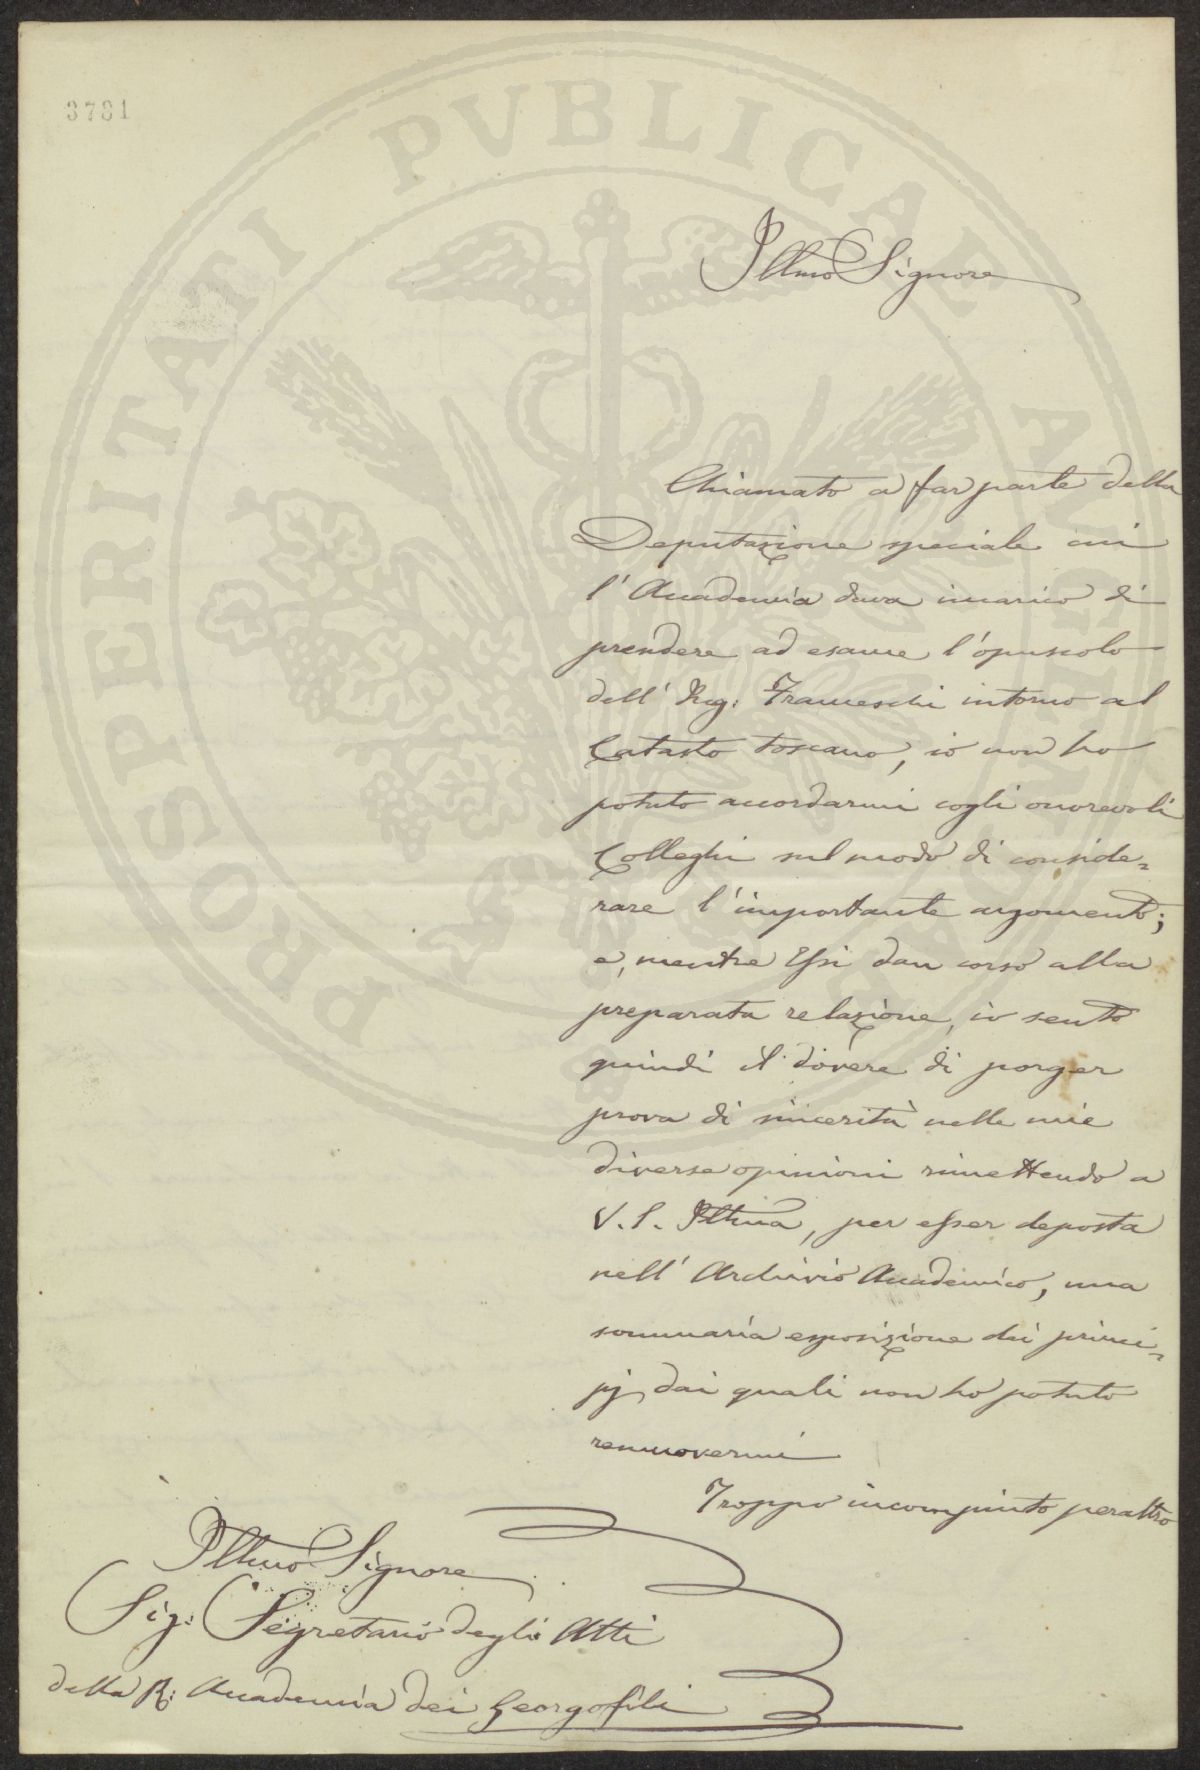 3781
PROSPERITATI PVBLICAE AVGENDAE
Illmo Signore
Chiamato a far parte della
Deputazione speciale cui
l'Accademia dava incarico di
prendere ad esame l'opuscolo
dell' Ing: Franceschi intorno al
Catasto toscano, io non ho
potuto accordarmi cogli onorevoli
Colleghi sul modo di conside=
rare l'importante argomento;
e, mentre Essi dan corso alla
preparata relazione, io sento
quindi il dovere di porger
prova di sincerità nelle mie
diverse opinioni rimettendo a
V. S. Illma, per esser deposta
nell' Archivio Accademico, una
sommaria esposizione dei princi=
pj dai quali non ho potuto
remuovermi
Troppo incompiuto peraltro
Illmo Signore
Sig: Segretario degli Atti
della R: Accademia dei Georgofili